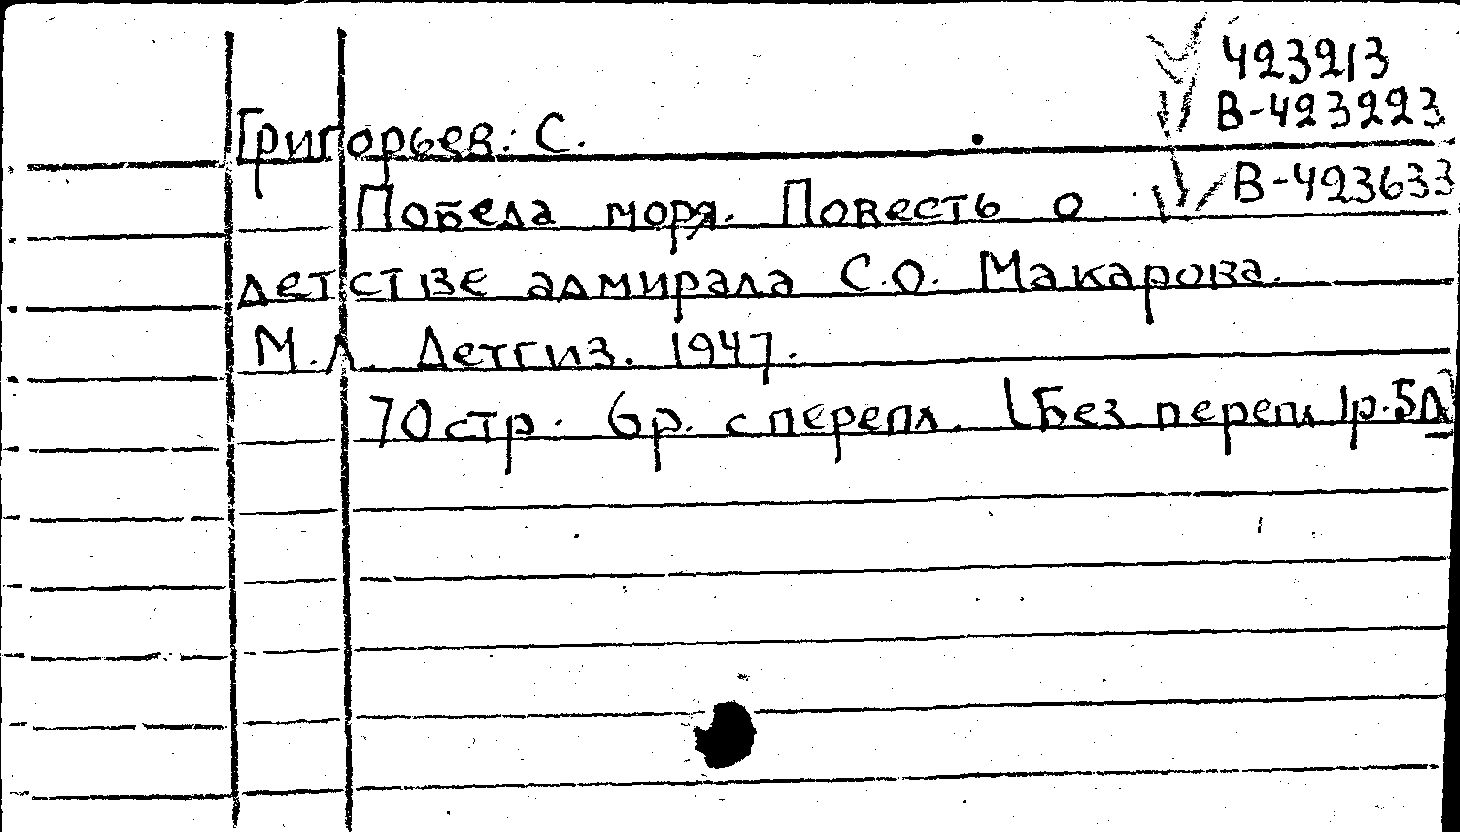 423213
В-423223
Григорьев. С.
В-423633
Победа моря. Повесть о
детстве адмирала С.О. Макарова.
М.Л. Детгиз. 1947.
70 стр. 6р. с перепл. (Без перепл 1р.5